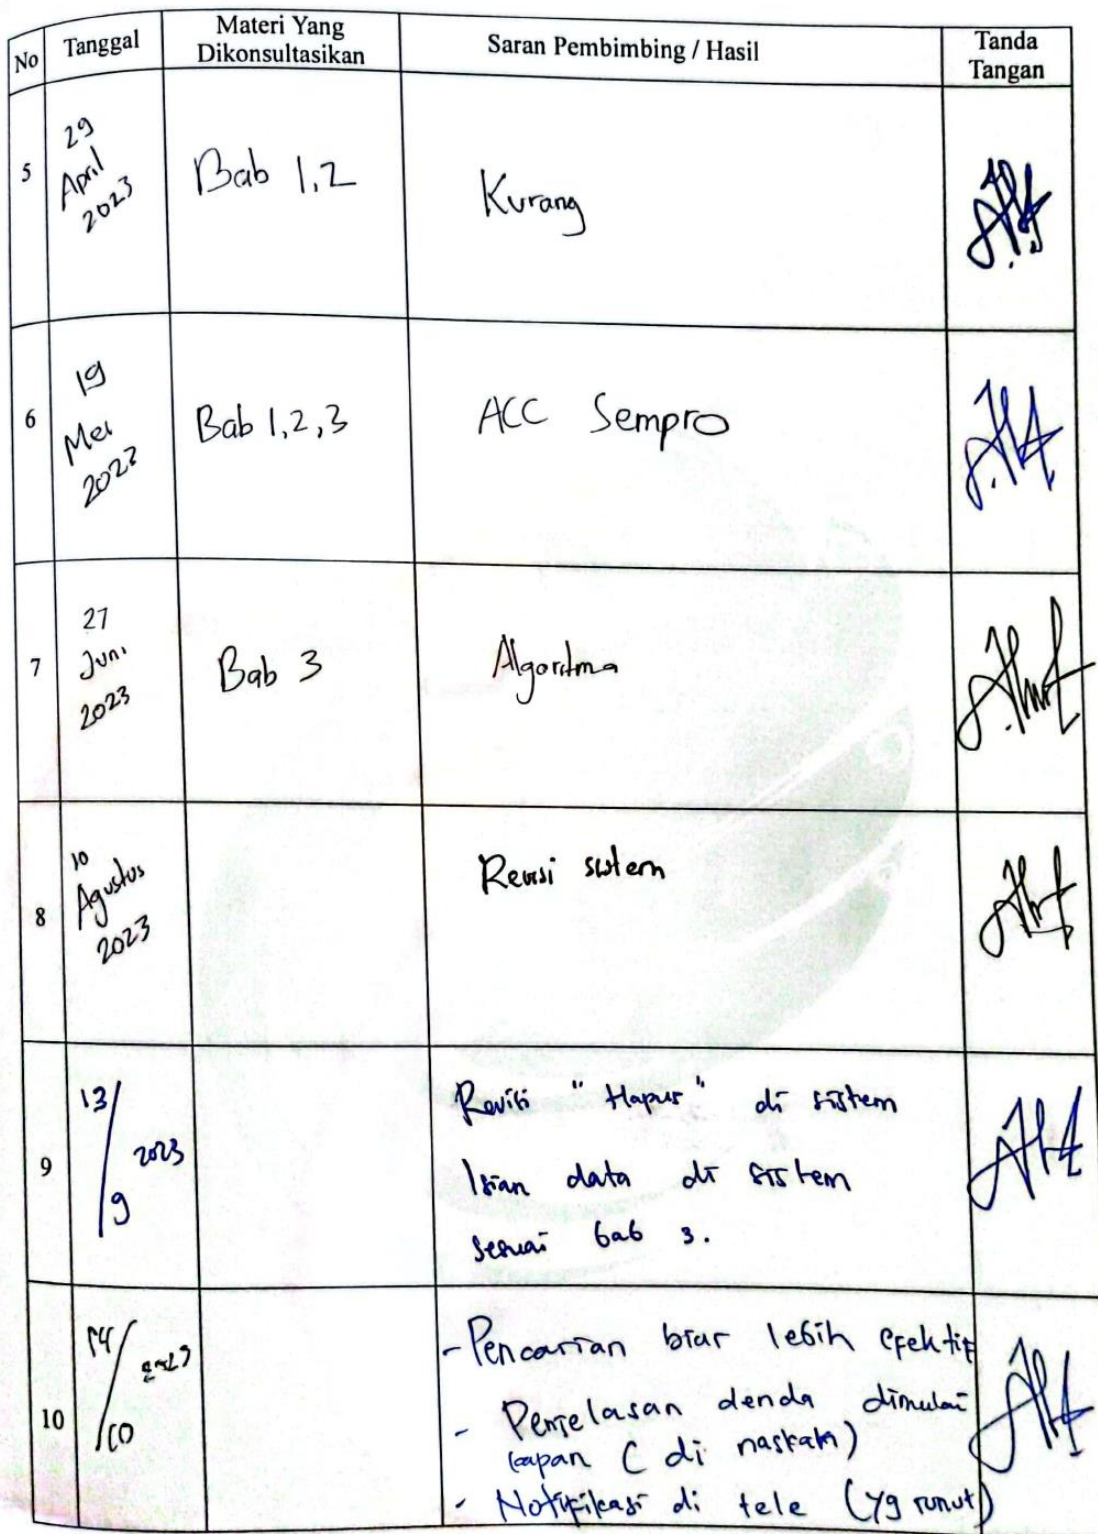 No
Tanggal
Materi Yang
Dikonsultasikan
Saran Pembimbing / Hasil
Tanda
Tangan
5
29
April
2023
Bab 1,2
Kurang
6
19
Mei
2023
Bab 1,2,3
ACC Sempro
7
27
Juni
2023
Bab 3
Algoritma
8
10
Agustus
2023
Revisi sistem
9
13/
9
2023
Revisi "Hapus" di sistem
Isian data di sistem
sesuai bab 3.
10
14/
10
2023
- Pencarian biar lebih efektif
- Penjelasan denda dimulai
kapan ( di naskah)
- Notifikasi di tele (yg runut)